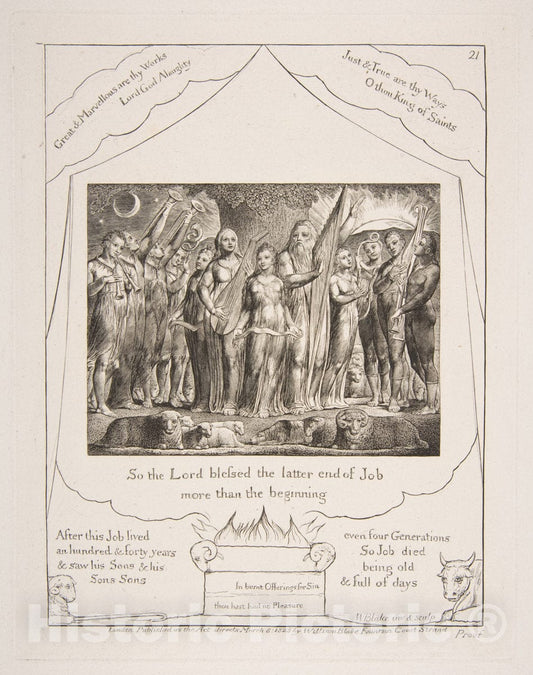 21
Great & Marvellous are thy Works
Lord God Almighty
Just & True are thy Ways
O thou King of Saints
So the Lord blessed the latter end of Job
more than the beginning
After this Job lived
an hundred & forty years
& saw his Sons & his
Sons Sons
even four Generations
So Job died
being old
& full of days
In burnt Offerings for Sin
thou hast had no Pleasure
WBlake inv & sculp
London Published as the Act directs March 8: 1825 by William Blake Fountain Court Strand
Proof
Historic Pictoric ®